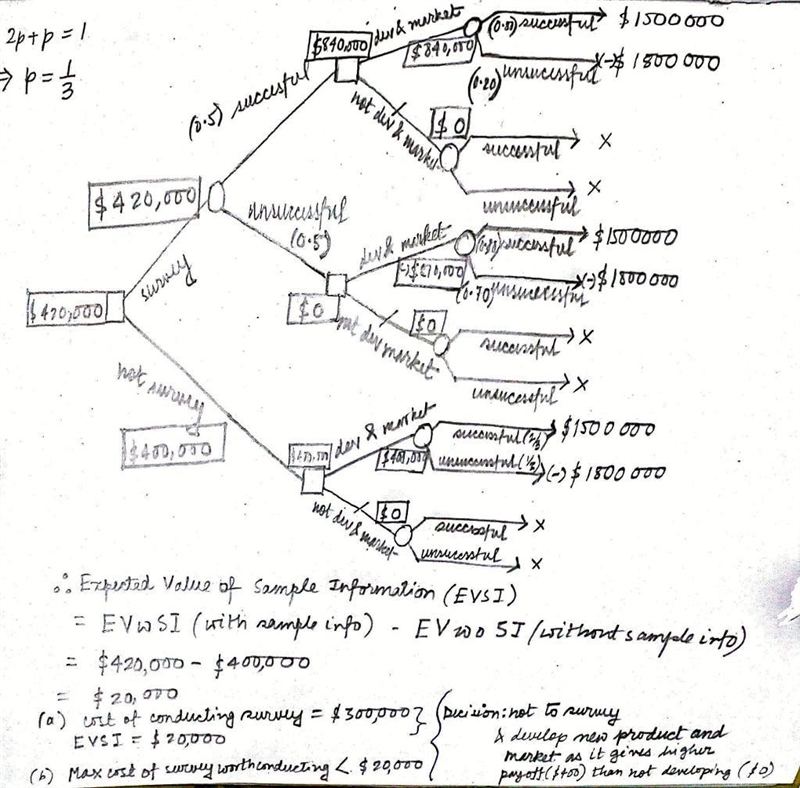 2p+p = 1
⇒ p = 1/3
$840,000
dev & market
(0.80) successful
$1500000
$840,000
unsucessful
(-) $ 1800 000
(0.20)
(0.5) succesful
not dev & marke
$0
successful
X
unsuccessful
X
$420,000
unsuccessful
(0.5)
dev & market
successful
$1500000
(-)$270,000
(0.70) unsuccessful
(-) $1800 000
survey
$420,000
$0
not dev market
$0
successful
X
unsuccessful
X
not survey
$400,000
dev & market
successful (2/3)
$1500 000
$400,000
$400,000
unsuccessful (1/3)
(-) $ 1800 000
not dev & market
$0
successful
X
unsucessful
X
∴ Expected Value of Sample Information (EVSI)
= EVwSI (with sample info) - EVwo SI (without sample info)
= $420,000 - $400,000
= $20,000
(a) cost of conducting survey = $300,000
EVSI = $20,000
Decision: not to survey
& develop new product and
market as it gives higher
payoff ($400) than not developing ($0)
(b) Max cost of survey worth conducting < $20,000